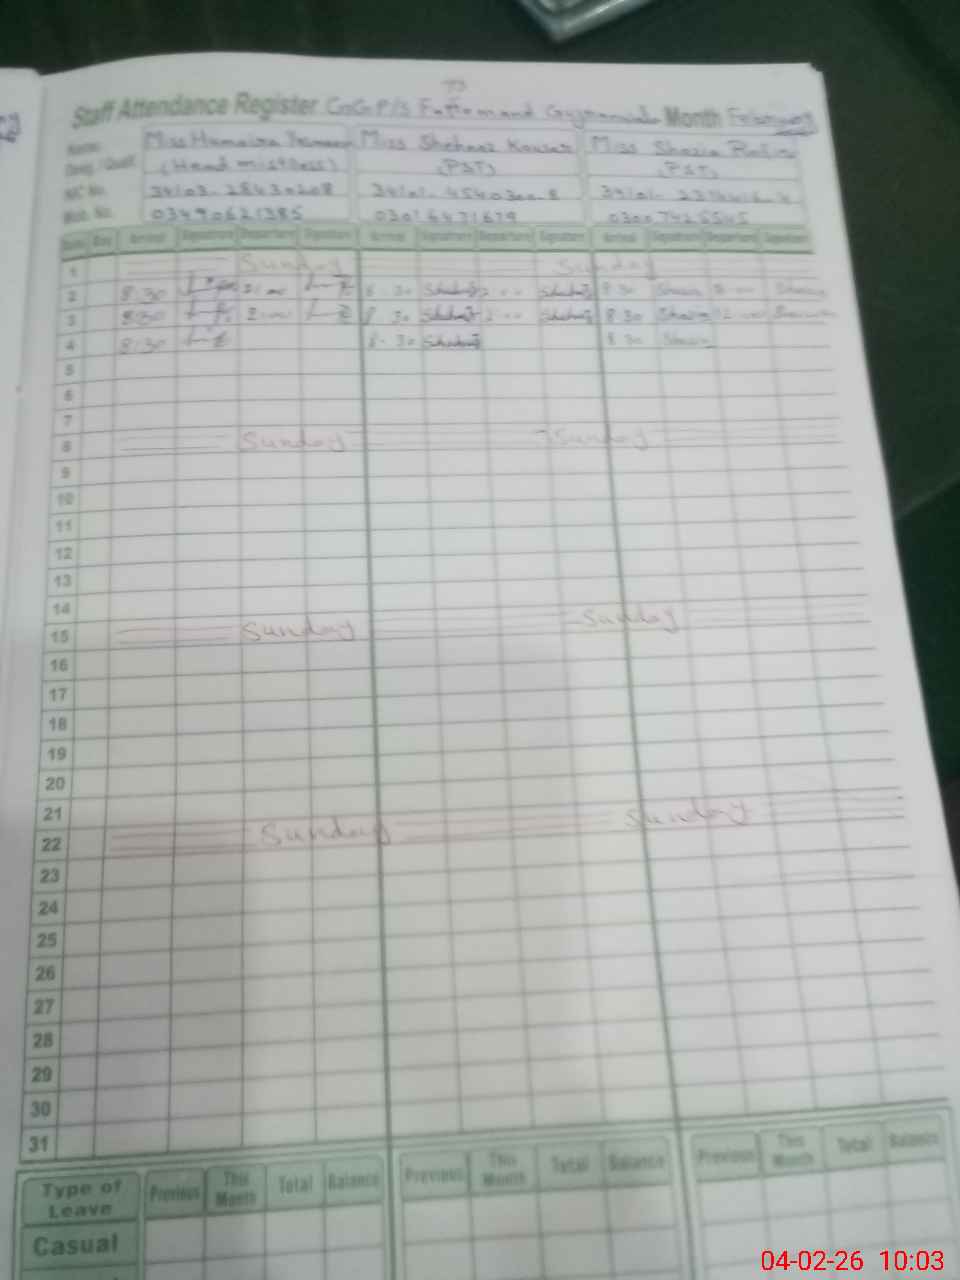 Staff Attendance Register G.G.P/S Fattomand Gujranwala Month February
Name: Miss Humaira Miss Shehnaz Kousar Miss Shazia
Desig. / Qualif. (Head mistress) (PST) (PST)
NIC No. 34103. 28430208 34101. 4540300.8 34101.
Mob. No. 03490621385 03016471679 03007425545
Date Day Arrival Signature Departure Signature Arrival Signature Departure Signature Arrival Signature Departure Signature
1 Sunday Sunday
2 8:30 2:00 8:30 Shehnaz 2:00 Shehnaz 8:30 Shazia 2:00 Shazia
3 8:30 2:00 8:30 Shehnaz 2:00 Shehnaz 8:30 Shazia 2:00 Shazia
4 8:30 8:30 Shehnaz 8:30 Shazia
5
6
7
8 Sunday Sunday
9
10
11
12
13
14
15 Sunday Sunday
16
17
18
19
20
21
22 Sunday Sunday
23
24
25
26
27
28
29
30
31
Type of Leave Previous This Month Total Balance Previous This Month Total Balance Previous This Month Total Balance
Casual
04-02-26 10:03